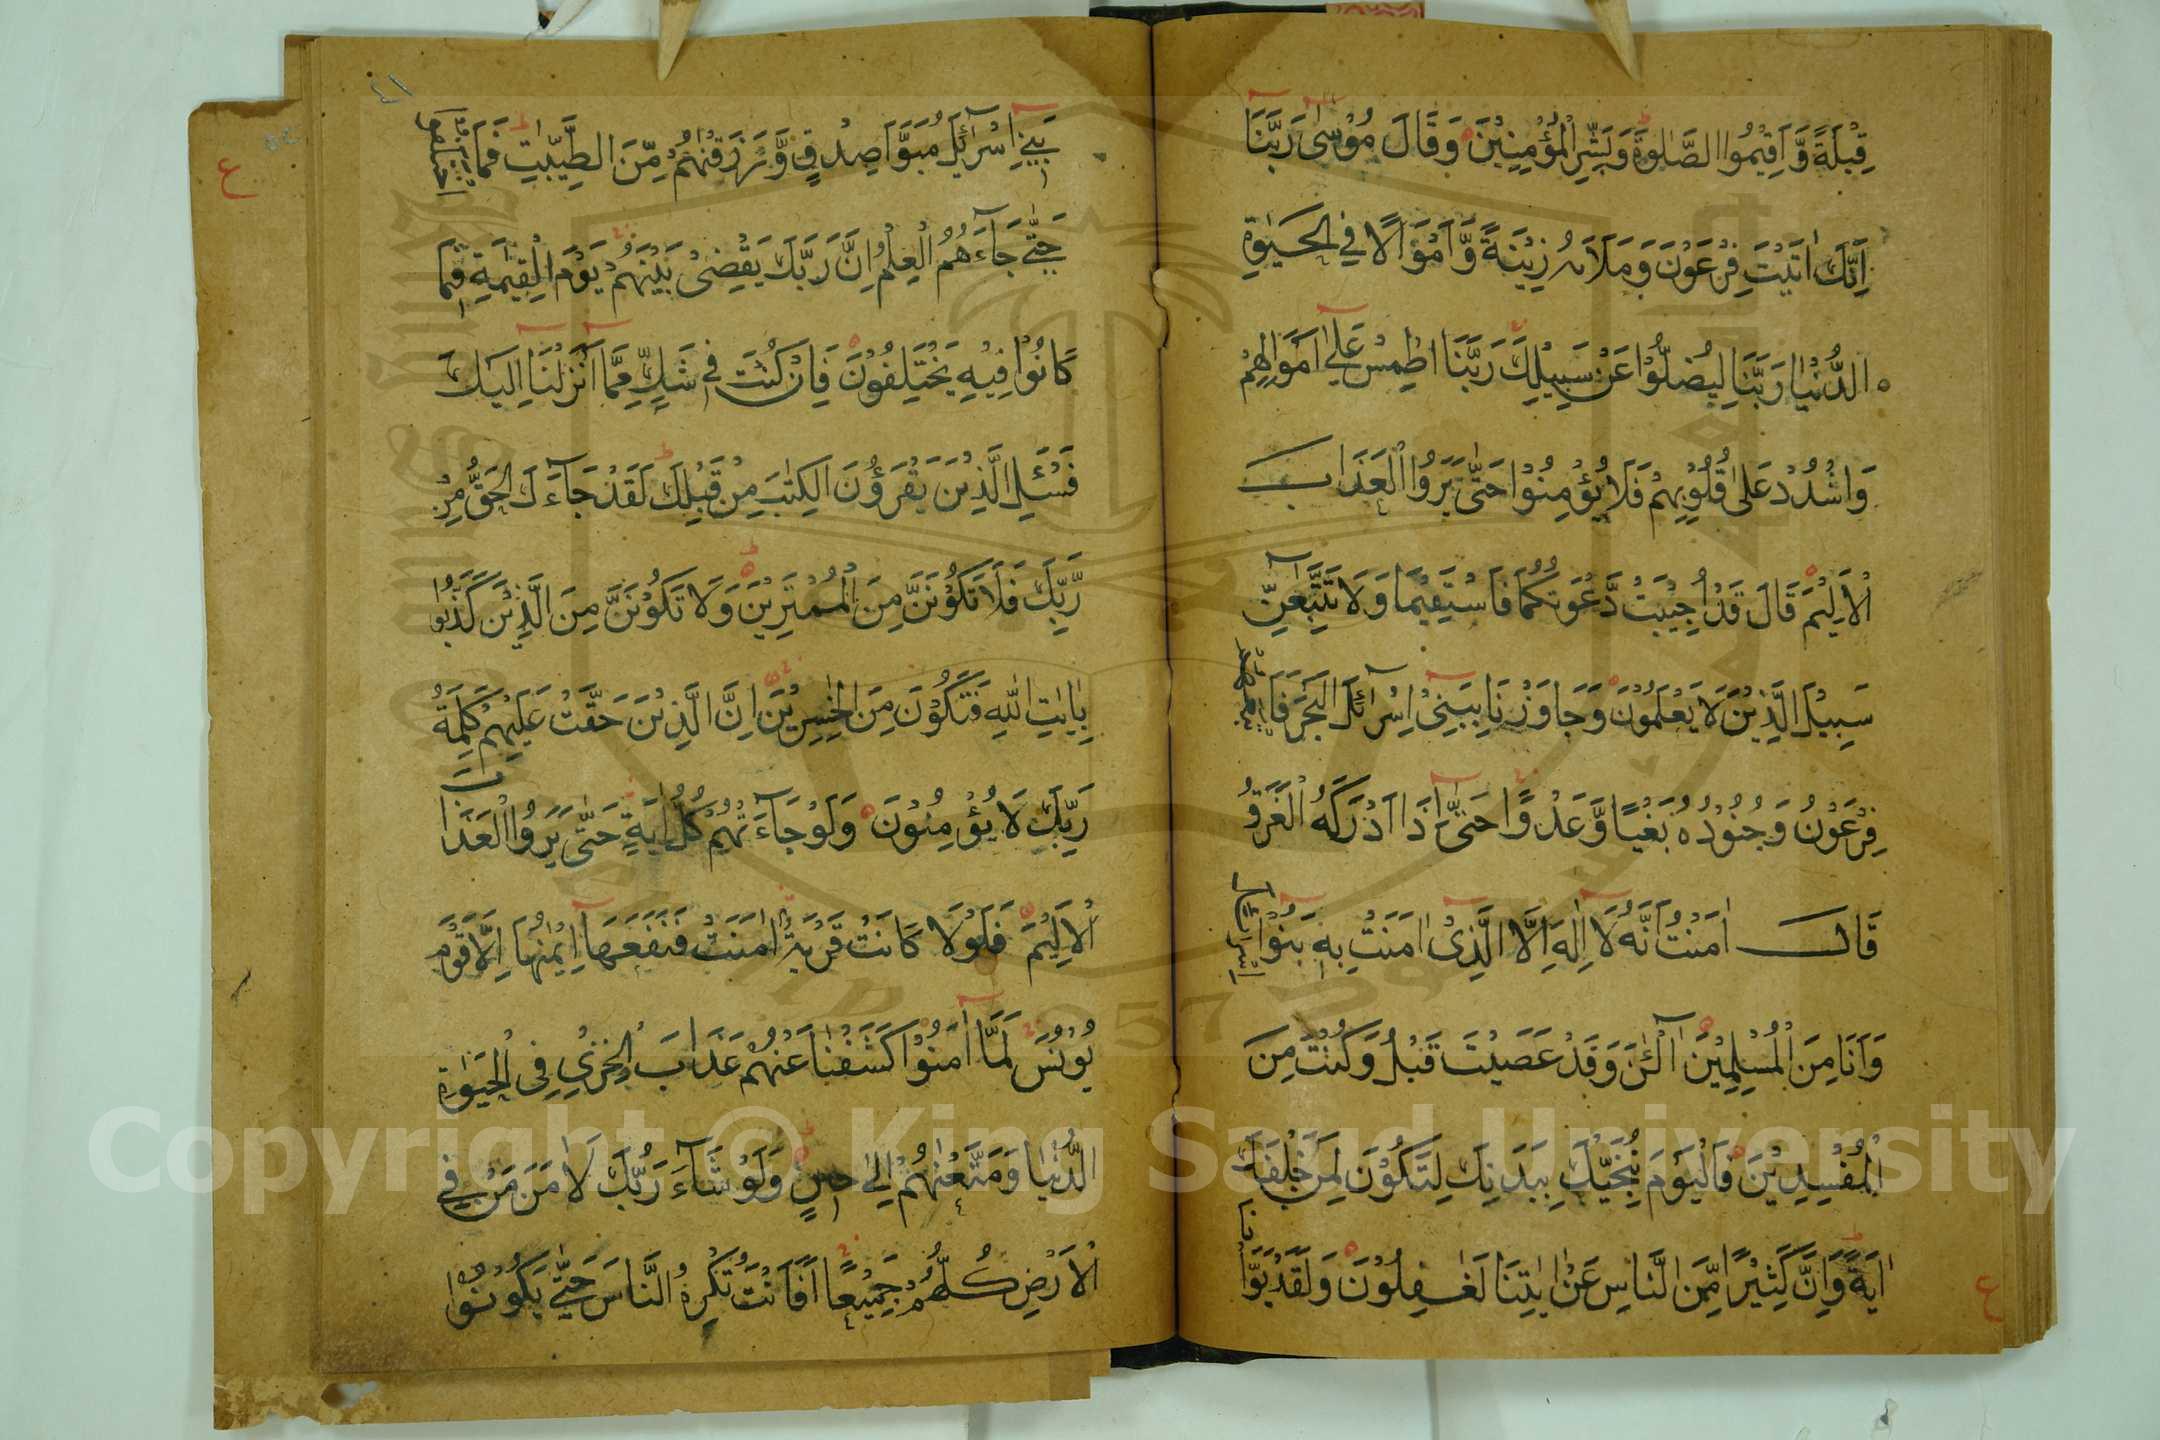 قِبْلَةً وَّاَقِيْمُوا الصَّلٰوةَ وَبَشِّرِ الْمُؤْمِنِيْنَ وَقَالَ مُوْسٰى رَبَّنَآ
اِنَّكَ اٰتَيْتَ فِرْعَوْنَ وَمَلَاَهٗ زِيْنَةً وَّاَمْوَالًا فِي الْحَيٰوةِ
الدُّنْيَا رَبَّنَا لِيُضِلُّوْا عَنْ سَبِيْلِكَ رَبَّنَا اطْمِسْ عَلٰٓى اَمْوَالِهِمْ
وَاشْدُدْ عَلٰى قُلُوْبِهِمْ فَلَا يُؤْمِنُوْا حَتّٰى يَرَوُا الْعَذَابَ
الْاَلِيْمَ قَالَ قَدْ اُجِيْبَتْ دَّعْوَتُكُمَا فَاسْتَقِيْمَا وَلَا تَتَّبِعٰٓنِّ
سَبِيْلَ الَّذِيْنَ لَا يَعْلَمُوْنَ وَجَاوَزْنَا بِبَنِيْٓ اِسْرَآئِلَ الْبَحْرَ فَاَتْبَعَهُمْ
فِرْعَوْنُ وَجُنُوْدُهٗ بَغْيًا وَّعَدْوًا حَتّٰٓى اِذَا اَدْرَكَهُ الْغَرَقُ
قَالَ اٰمَنْتُ اَنَّهٗ لَآ اِلٰهَ اِلَّا الَّذِيْٓ اٰمَنَتْ بِهٖ بَنُوْٓا اِسْرَآئِلَ
وَاَنَا مِنَ الْمُسْلِمِيْنَ آٰلْـٰٔنَ وَقَدْ عَصَيْتَ قَبْلُ وَكُنْتَ مِنَ
الْمُفْسِدِيْنَ فَالْيَوْمَ نُنَجِّيْكَ بِبَدَنِكَ لِتَكُوْنَ لِمَنْ خَلْفَكَ
اٰيَةً وَاِنَّ كَثِيْرًا مِّنَ النَّاسِ عَنْ اٰيٰتِنَا لَغٰفِلُوْنَ وَلَقَدْ بَوَّاْنَا
ع
٤١
بَنِيْٓ اِسْرَآئِلَ مُبَوَّاَ صِدْقٍ وَّرَزَقْنٰهُمْ مِّنَ الطَّيِّبٰتِ فَمَا اخْتَلَفُوْا
حَتّٰى جَآءَهُمُ الْعِلْمُ اِنَّ رَبَّكَ يَقْضِيْ بَيْنَهُمْ يَوْمَ الْقِيٰمَةِ فِيْمَا
كَانُوْا فِيْهِ يَخْتَلِفُوْنَ فَاِنْ كُنْتَ فِيْ شَكٍّ مِّمَّآ اَنْزَلْنَآ اِلَيْكَ
فَسْـَٔلِ الَّذِيْنَ يَقْرَءُوْنَ الْكِتٰبَ مِنْ قَبْلِكَ لَقَدْ جَآءَكَ الْحَقُّ مِنْ
رَّبِّكَ فَلَا تَكُوْنَنَّ مِنَ الْمُمْتَرِيْنَ وَلَا تَكُوْنَنَّ مِنَ الَّذِيْنَ كَذَّبُوْا
بِاٰيٰتِ اللّٰهِ فَتَكُوْنَ مِنَ الْخٰسِرِيْنَ اِنَّ الَّذِيْنَ حَقَّتْ عَلَيْهِمْ كَلِمَةُ
رَبِّكَ لَا يُؤْمِنُوْنَ وَلَوْ جَآءَتْهُمْ كُلُّ اٰيَةٍ حَتّٰى يَرَوُا الْعَذَابَ
الْاَلِيْمَ فَلَوْلَا كَانَتْ قَرْيَةٌ اٰمَنَتْ فَنَفَعَهَآ اِيْمٰنُهَا اِلَّا قَوْمَ
يُوْنُسَ لَمَّآ اٰمَنُوْا كَشَفْنَا عَنْهُمْ عَذَابَ الْخِزْيِ فِي الْحَيٰوةِ
الدُّنْيَا وَمَتَّعْنٰهُمْ اِلٰى حِيْنٍ وَلَوْ شَآءَ رَبُّكَ لَاٰمَنَ مَنْ فِي
الْاَرْضِ كُلُّهُمْ جَمِيْعًا اَفَاَنْتَ تُكْرِهُ النَّاسَ حَتّٰى يَكُوْنُوْا
ع
Copyright © King Saud University